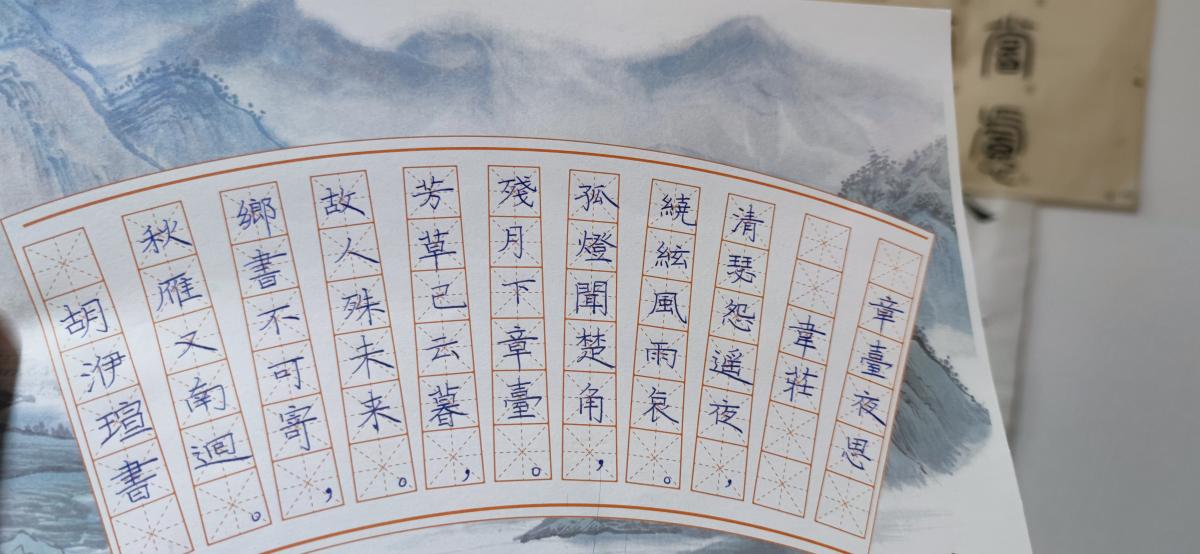 章臺夜思
韋莊
清瑟怨遥夜，
繞絃風雨哀。
孤燈聞楚角，
殘月下章臺。
芳草已云暮，
故人殊未来。
鄉書不可寄，
秋雁又南迴。
胡洢瑄書